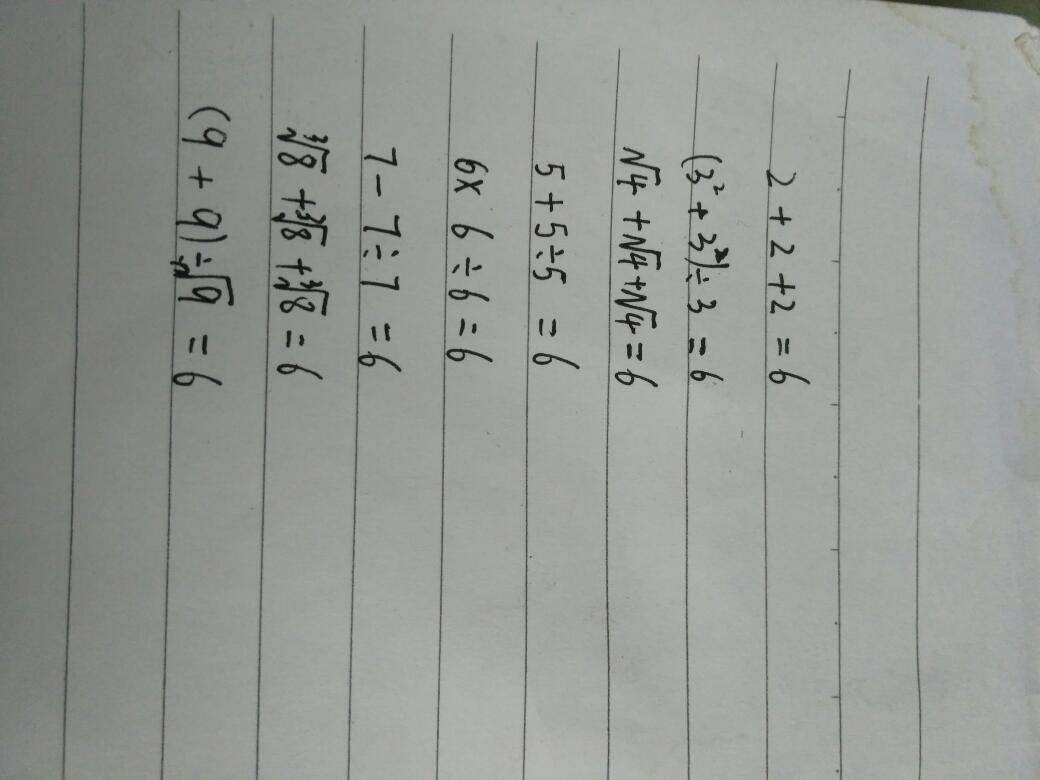 2 + 2 + 2 = 6
(3² + 3²) ÷ 3 = 6
√4 + √4 + √4 = 6
5 + 5 ÷ 5 = 6
6 × 6 ÷ 6 = 6
7 - 7 ÷ 7 = 6
∛8 + ∛8 + ∛8 = 6
(9 + 9) ÷ √9 = 6